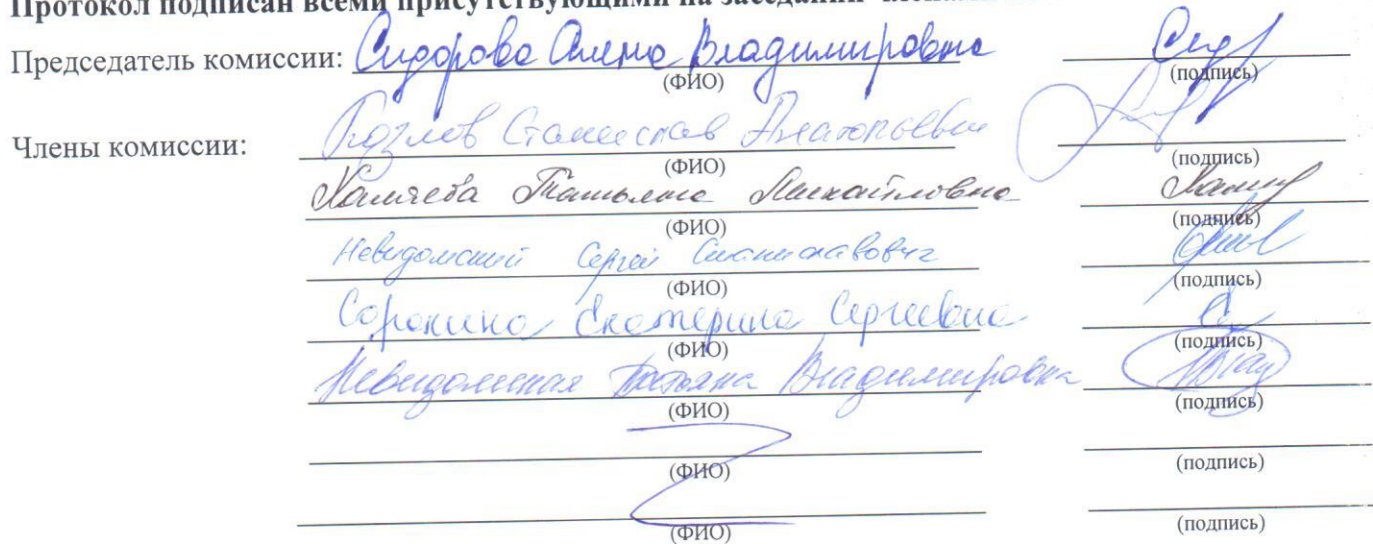 Протокол подписан всеми присутствующими на заседании
Председатель комиссии: Сидорова Алена Владимировна
(ФИО) (подпись)
Члены комиссии: Козлов Станислав Анатольевич
(ФИО) (подпись)
Татьяна Михайловна
(ФИО) (подпись)
Невидомский Сергей Станиславович
(ФИО) (подпись)
Сорокина Екатерина Сергеевна
(ФИО) (подпись)
Невидомская Татьяна Владимировна
(ФИО) (подпись)
(ФИО) (подпись)
(ФИО) (подпись)